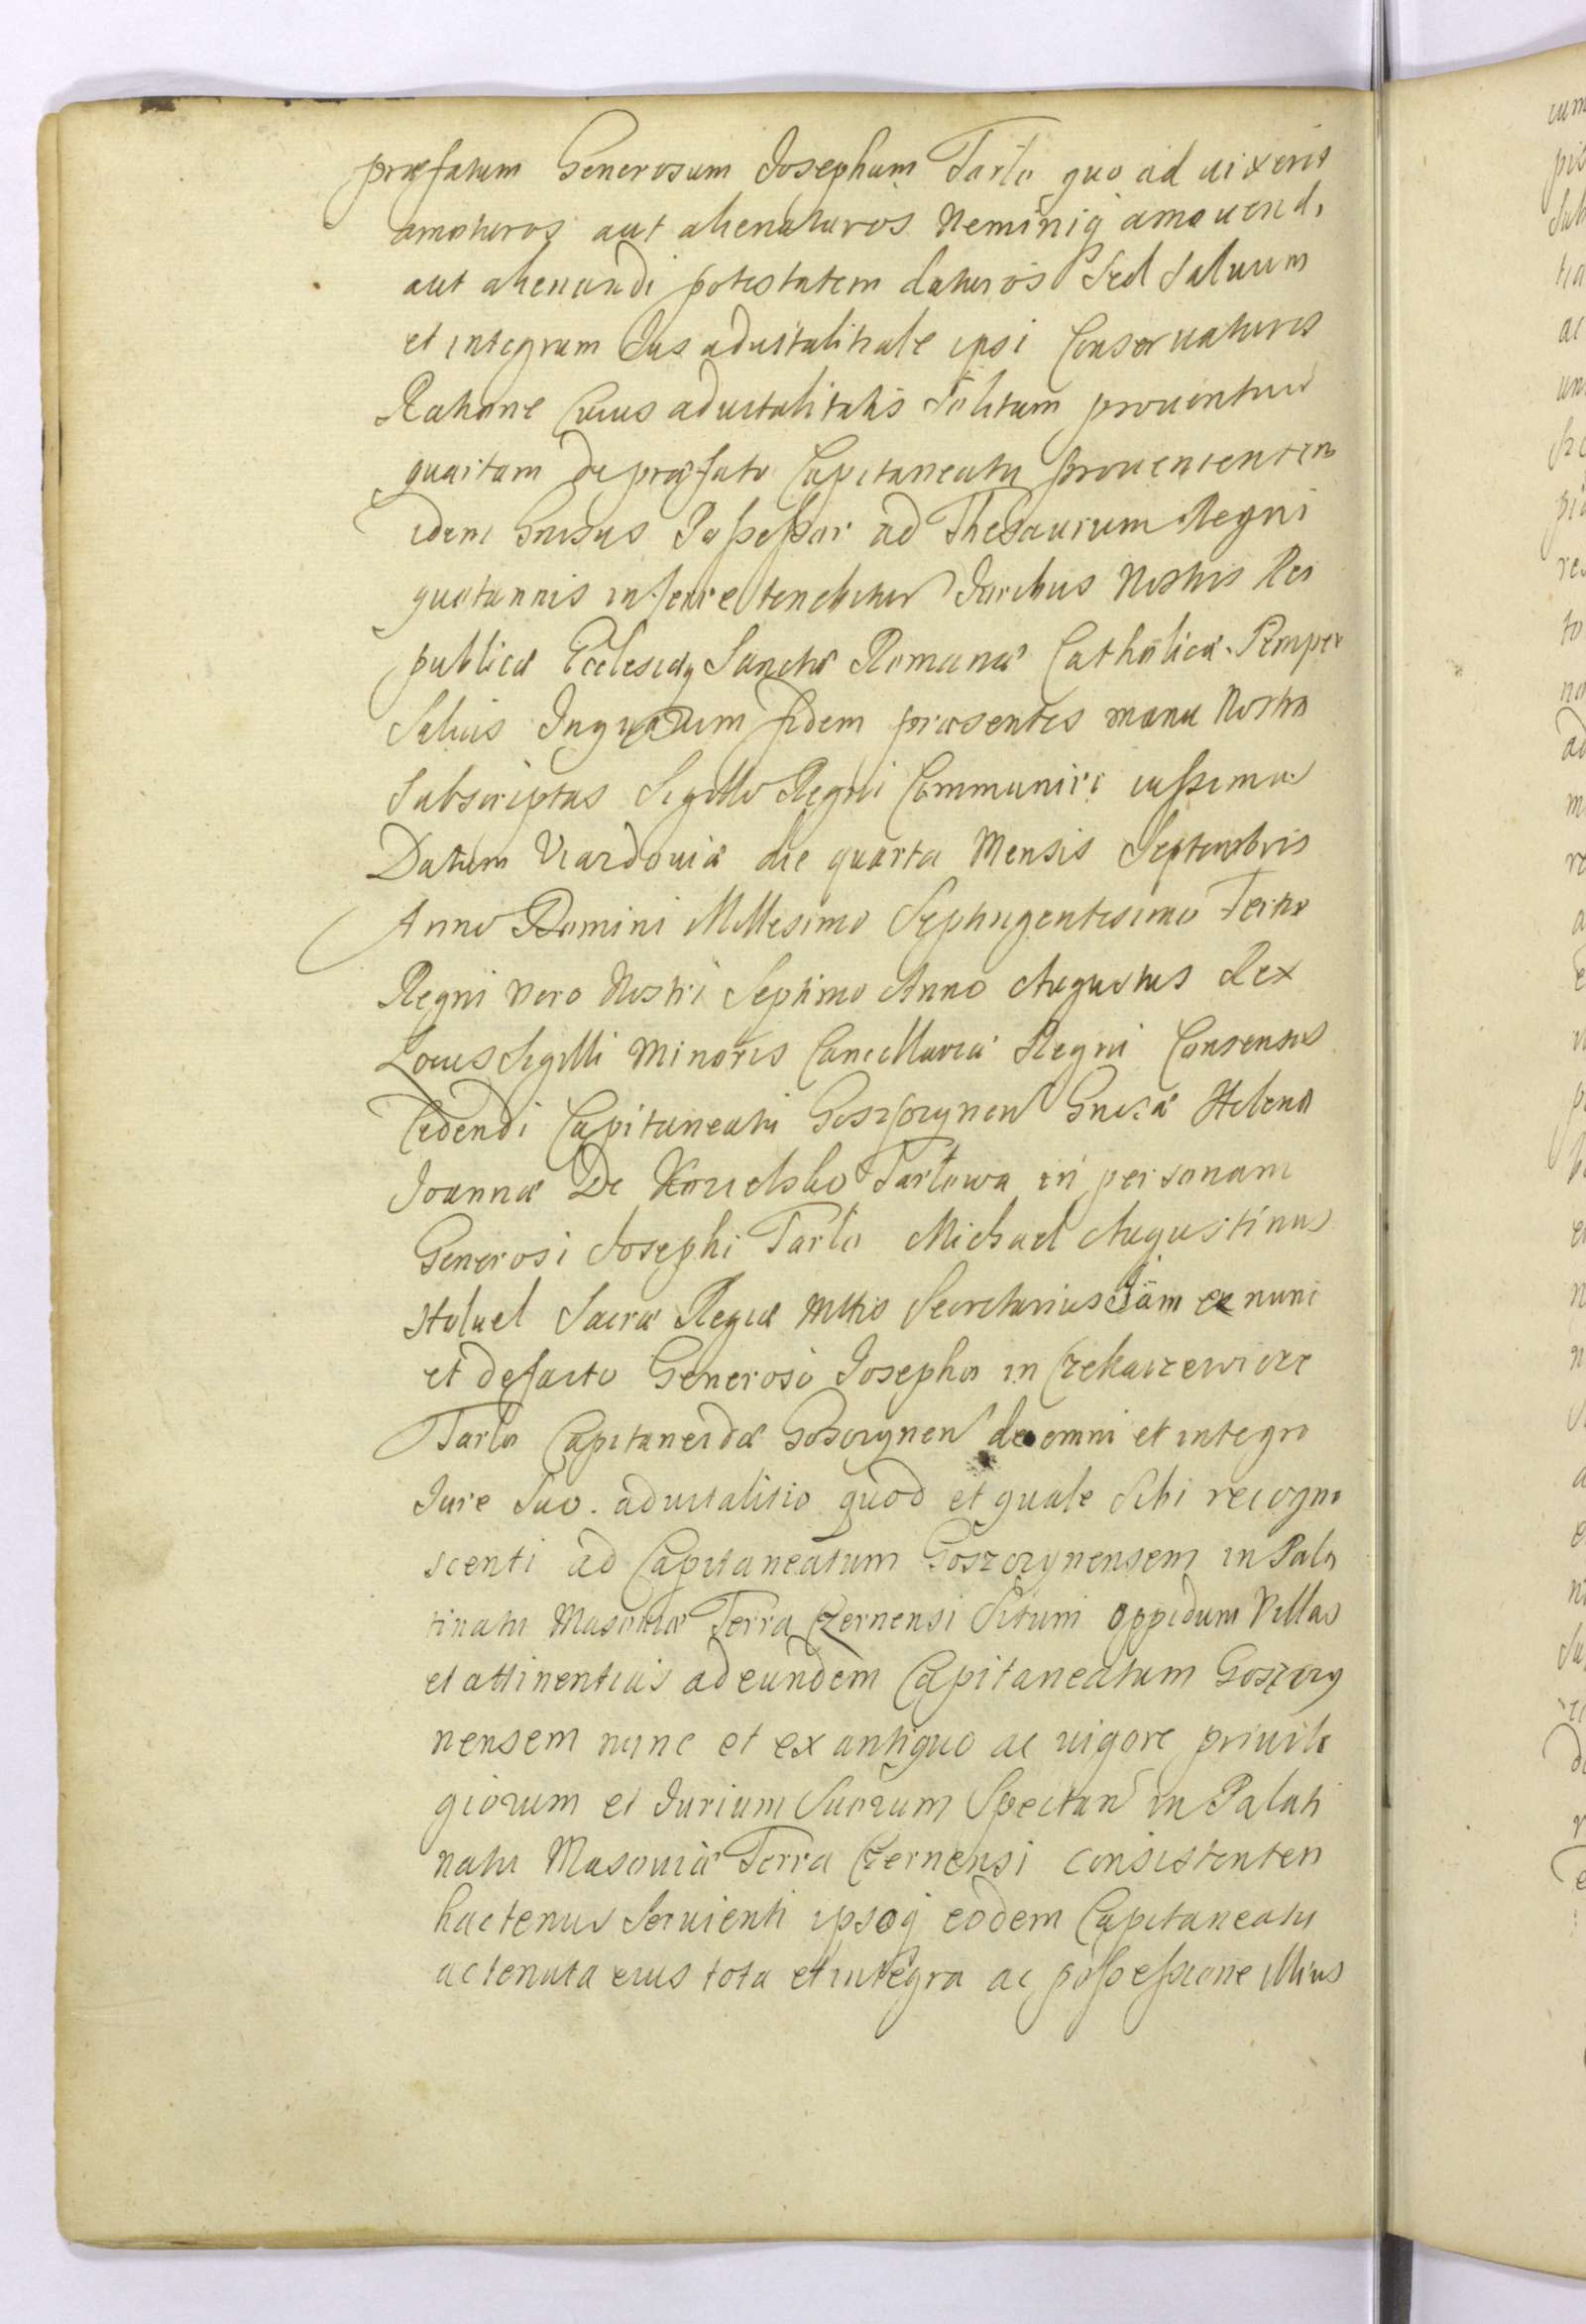 præfatum Generosum Josephum Tarło quo ad uixerit
amoturos aut alienaturos Neminiq́ amouendi
aut alienandi potestatem daturos Sed Saluum
et integrum Jus aduitalitiale ipsi Conservaturos
Ratione Cuius aduitalitatis Solitam prouentuũ
quartam de præfato Capitaneatu prouenienten
idem Gnẽsus Possessor ad Thesaurum Regni
quotannis inferre tenebitur Juribus Nostris Rei
publicæ Ecclesiæq Sanctæ Romanæ Catholicæ Semper
Saluis In quorum fidem præsentes manu Nostra
Subscriptas Sigillo Regni Communiri iussimus
Datum Viazdoviæ die quarta Mensis Septembris
Anno Domini Millesimo Septingentesimo Tertio
Regni Vero Nostri Septimo Anno Augustus Rex
Locus Sigilli Minoris Cancellariæ Regni Consensus
Cedendi Capitaneatu Goszczynen Gnẽsæ Helenæ
Joannæ De Tarłowa in personam
Generosi Josephi Tarło Michael Augustinus
Sacræ Regiæ Mttis Secretarius Jam ex nunc
et de facto Generoso Josepho in Czekarzewicze
Tarło Capitaneidæ Goszczynen de omni et integro
Jure Suo aduitalitio quod et quale Sibi recogno
scenti ad Capitaneatum Goszczynensem in Pala
tinatu Masouiæ Terra Czernensi Situm oppidum Villas
et attinentias ad eundem Capitaneatum Goszczy
nensem nunc et ex antiquo ac uigore priuile
giorum et Jurium Suorum Spectan in Palati
natu Masouiæ Terra Czernensi consistenten
hactenus Seruienti ipsoq́ eodem Capitaneatu
ac tenuta eius tota et integra ac possessione illius